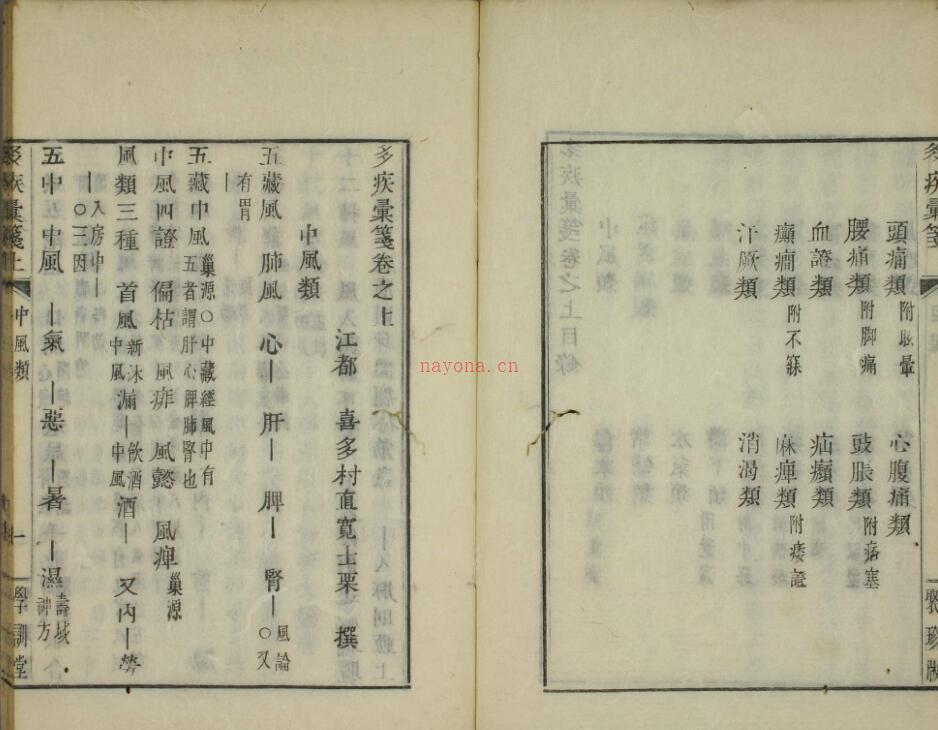 頭痛類附眩暈　心腹痛類
腰痛類附脚痛　鼓脹類附痞塞
血證類　疝㿗類
癲癇類附不寐　麻痺類附痿證
汗厥類　消渴類
聚珍版
多疾彙箋卷之上
江都　喜多村直寬士栗　撰
中風類
五藏風肺風　心｜　肝｜　脾｜　腎｜風論○又
有胃｜
五藏中風巢源○中藏經風中有五者謂肝心脾肺腎也
中風四證偏枯　風痱　風懿　風痺巢源
風類三種　首風新沐中風　漏｜飲酒中風　酒｜　又內｜勞
｜入房中｜○三因
五中中風　｜氣　｜惡　｜暑　｜濕壽域神方
多疾彙箋上　中風類　一　學訓堂
nayona.cn